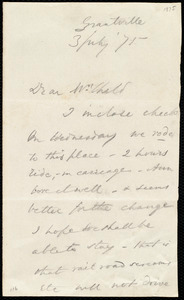 Grantville
3 July '75
Dear Mrs. Child
I inclose check
On Wednesday we rode
to this place - 2 hours
ride, in carriage - Ann
bore it well - & seems
better for the change
I hope we shall be
able to stay - that is
that rail road
&c will not drive